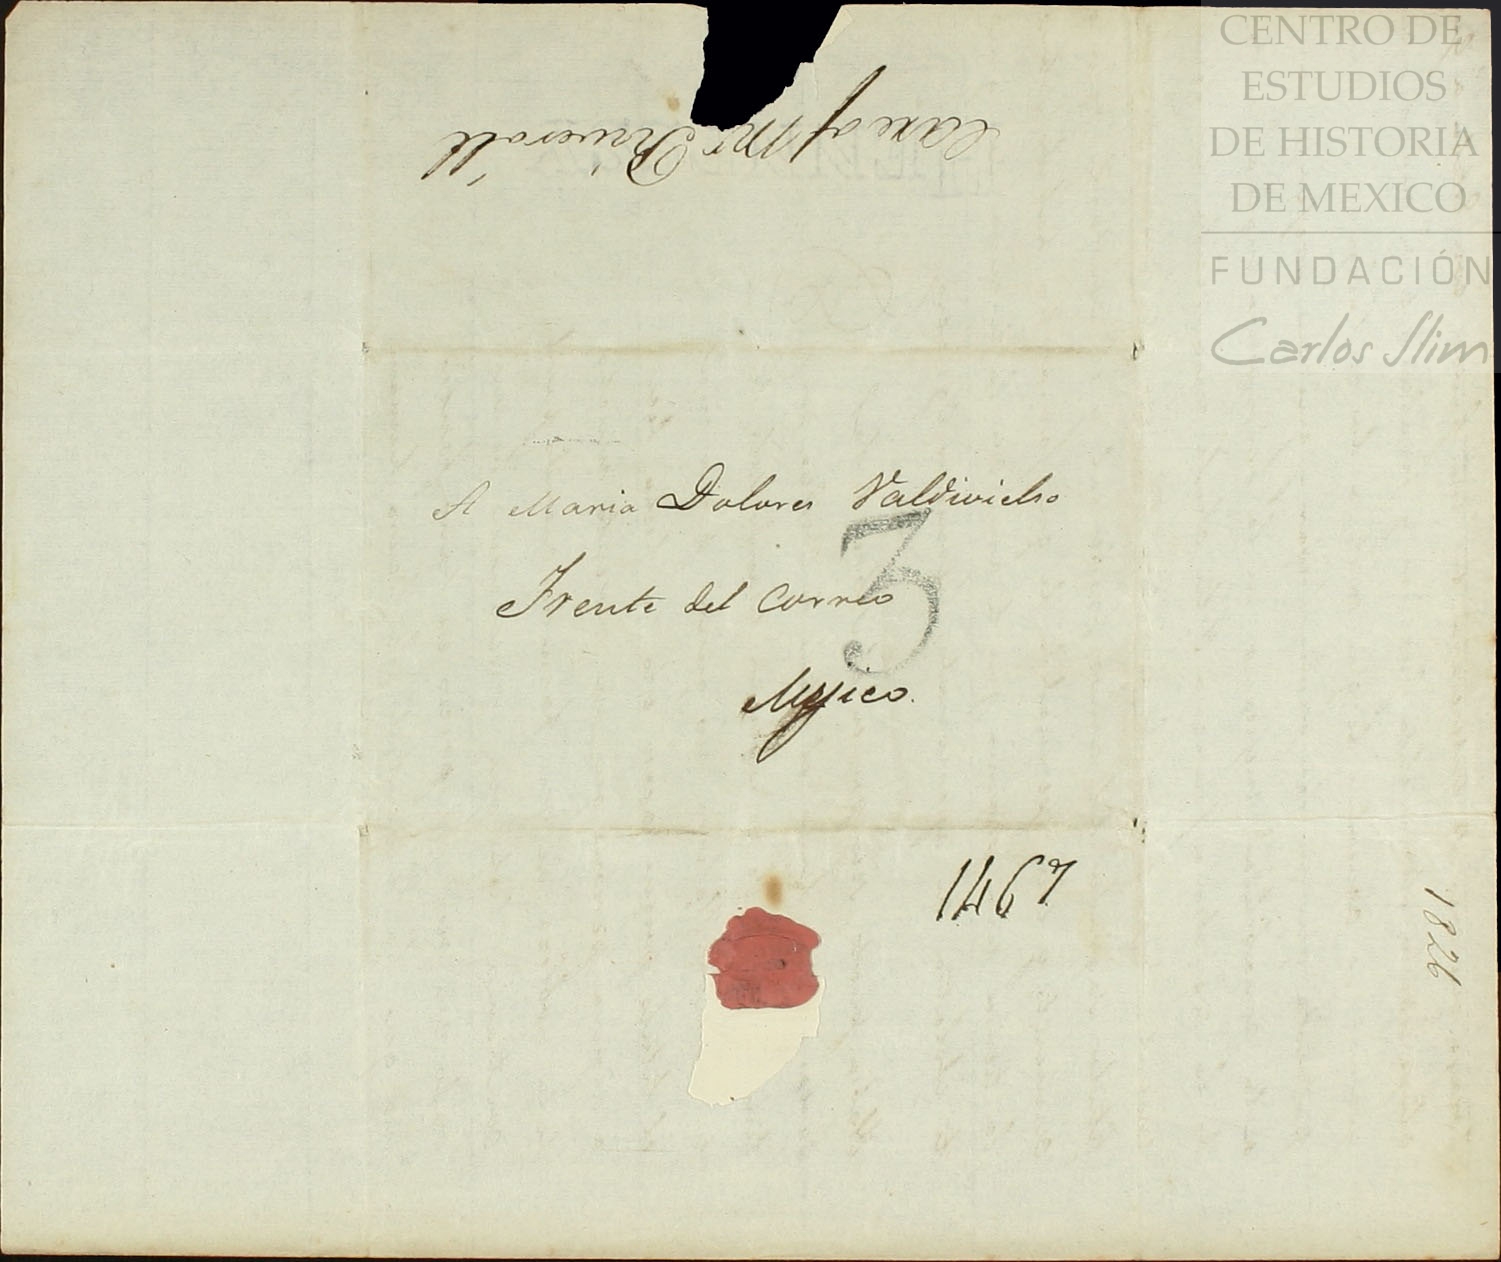 Care of Mr
A Maria Dolores Valdivielso
Frente del Correo
3
Mejico.
1467
1826
CENTRO DE
ESTUDIOS
DE HISTORIA
DE MEXICO
FUNDACIÓN
Carlos Slim